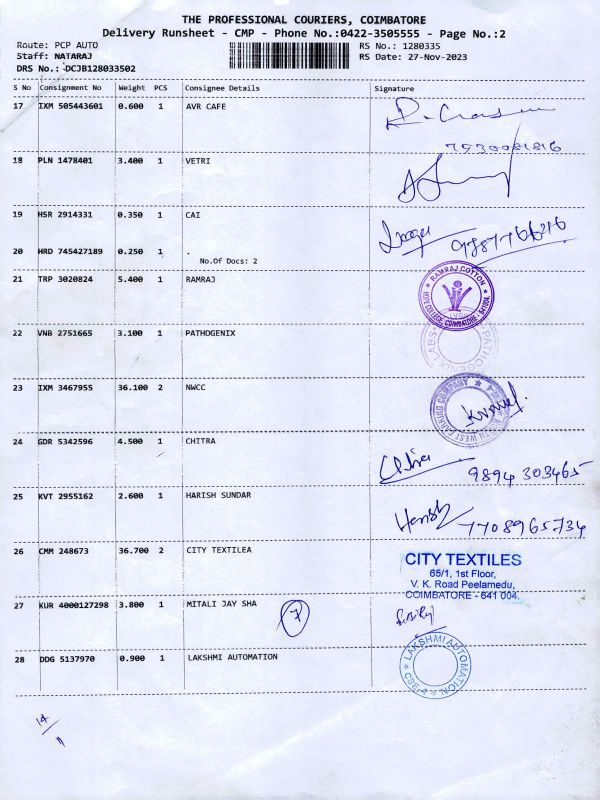 THE PROFESSIONAL COURIERS, COIMBATORE
Delivery Runsheet - CMP - Phone No.:0422-3505555 - Page No.:2
Route: PCP AUTO RS No.: 1280335
Staff: NATARAJ RS Date: 27-Nov-2023
DRS No.: DCJB128033502
S No Consignment No Weight PCS Consignee Details Signature
17 IXM 505443601 0.600 1 AVR CAFE
7530081816
18 PLN 1478401 3.400 1 VETRI
19 HSR 2914331 0.350 1 CAI
20 HRD 745427189 0.250 1 .
No.Of Docs: 2
21 TRP 3020824 5.400 1 RAMRAJ
RAMRAJ COTTON
HOPE COLLEGE, COIMBATORE - 641004.
22 VNB 2751665 3.100 1 PATHOGENIX
PATHOGENIX LABS
23 IXM 3467955 36.100 2 NWCC
NORTH WEST CARRYING COMPANY
24 GDR 5342596 4.500 1 CHITRA
9894 303465
25 KVT 2955162 2.600 1 HARISH SUNDAR
Harish 7708965734
26 CMM 248673 36.700 2 CITY TEXTILEA
CITY TEXTILES
65/1, 1st Floor,
V. K. Road Peelamedu,
COIMBATORE - 641 004.
27 KUR 4000127298 3.800 1 MITALI JAY SHA
7
28 DDG 5137970 0.900 1 LAKSHMI AUTOMATION
LAKSHMI AUTOMATION
CBE-4
14
11